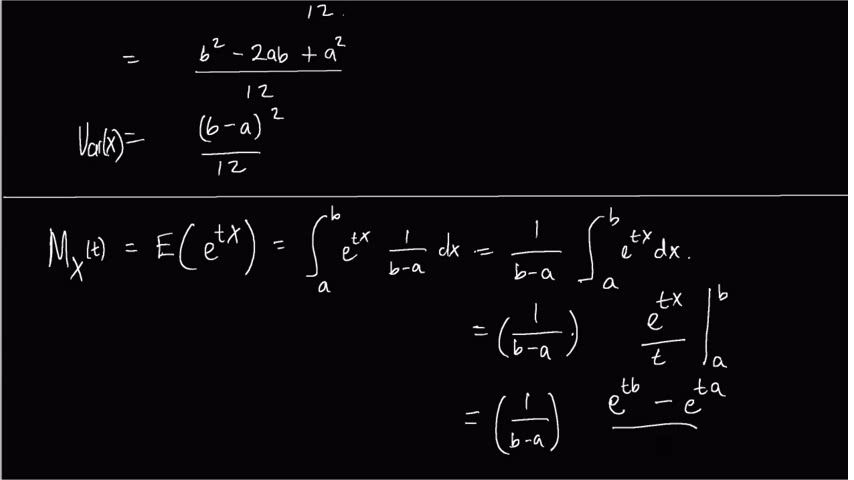 12.
= (b² - 2ab + a²)/12
Var(x) = (b-a)²/12
M_X(t) = E(e^{tX}) = ∫_a^b e^{tx} 1/(b-a) dx = 1/(b-a) ∫_a^b e^{tx} dx.
= (1/(b-a).) e^{tx}/t |_a^b
= (1/(b-a)) e^{tb} - e^{ta}